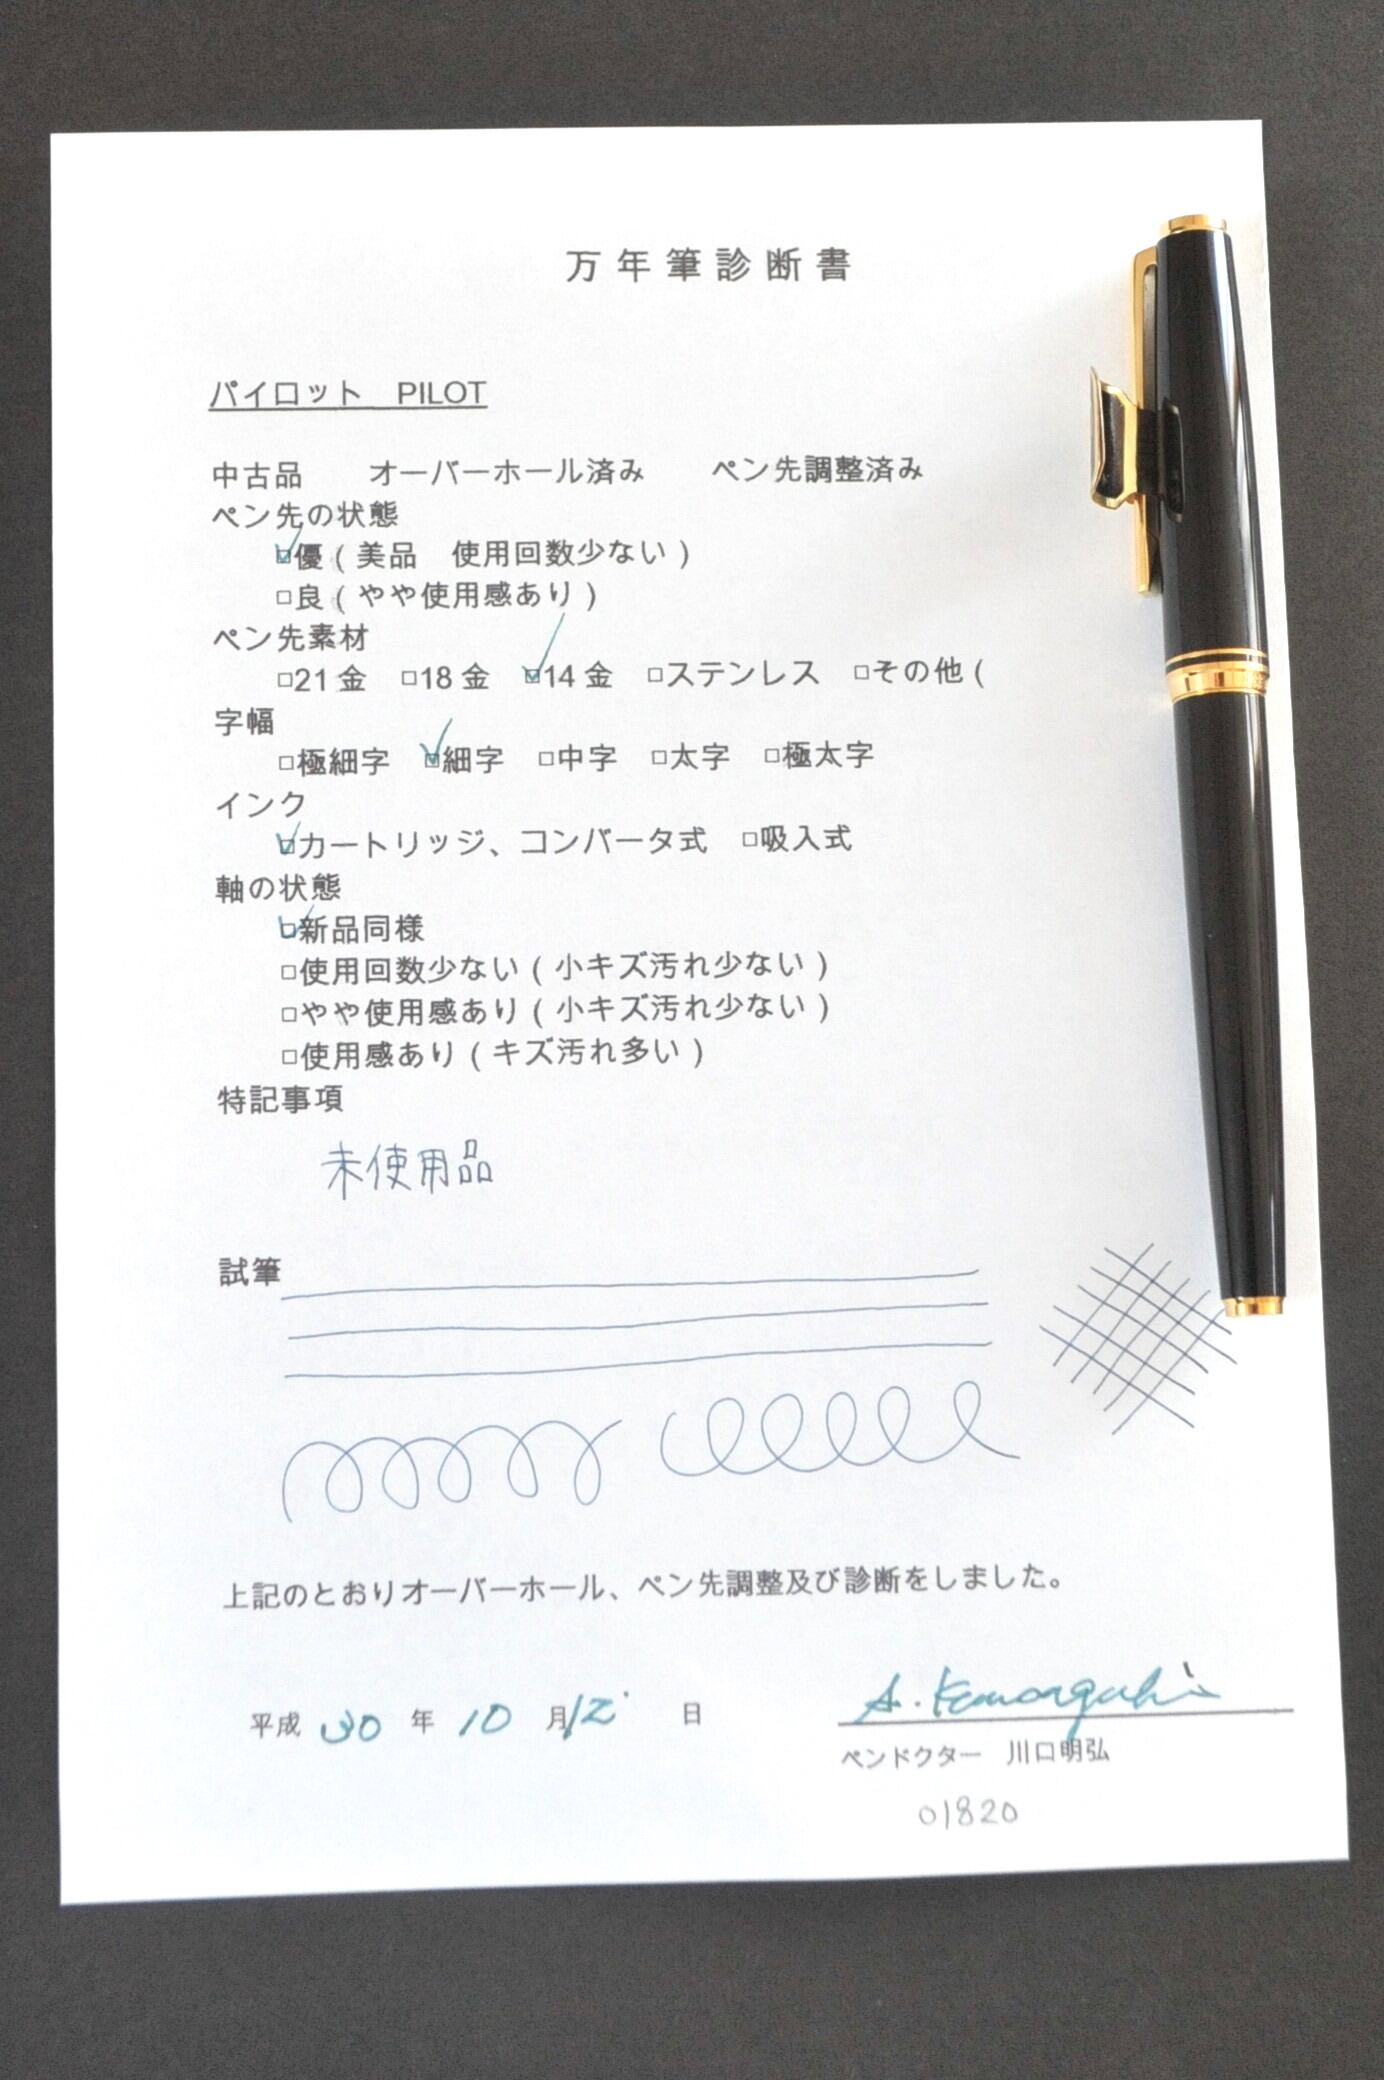 万年筆診断書
パイロット　PILOT
中古品　　オーバーホール済み　　ペン先調整済み
ペン先の状態
☑優（美品　使用回数少ない）
□良（やや使用感あり）
ペン先素材
□21金　□18金　☑14金　□ステンレス　□その他（
字幅
□極細字　☑細字　□中字　□太字　□極太字
インク
☑カートリッジ、コンバータ式　□吸入式
軸の状態
☑新品同様
□使用回数少ない（小キズ汚れ少ない）
□やや使用感あり（小キズ汚れ少ない）
□使用感あり（キズ汚れ多い）
特記事項
未使用品
試筆
上記のとおりオーバーホール、ペン先調整及び診断をしました。
平成 30 年 10 月 12 日
A. Kawaguchi
ペンドクター　川口明弘
01820